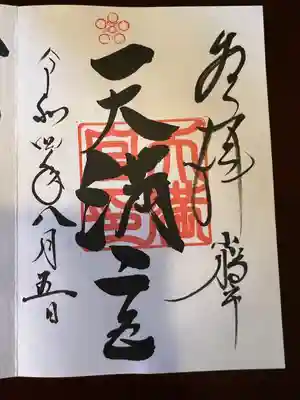 奉拝
天満宮
令和四年八月五日